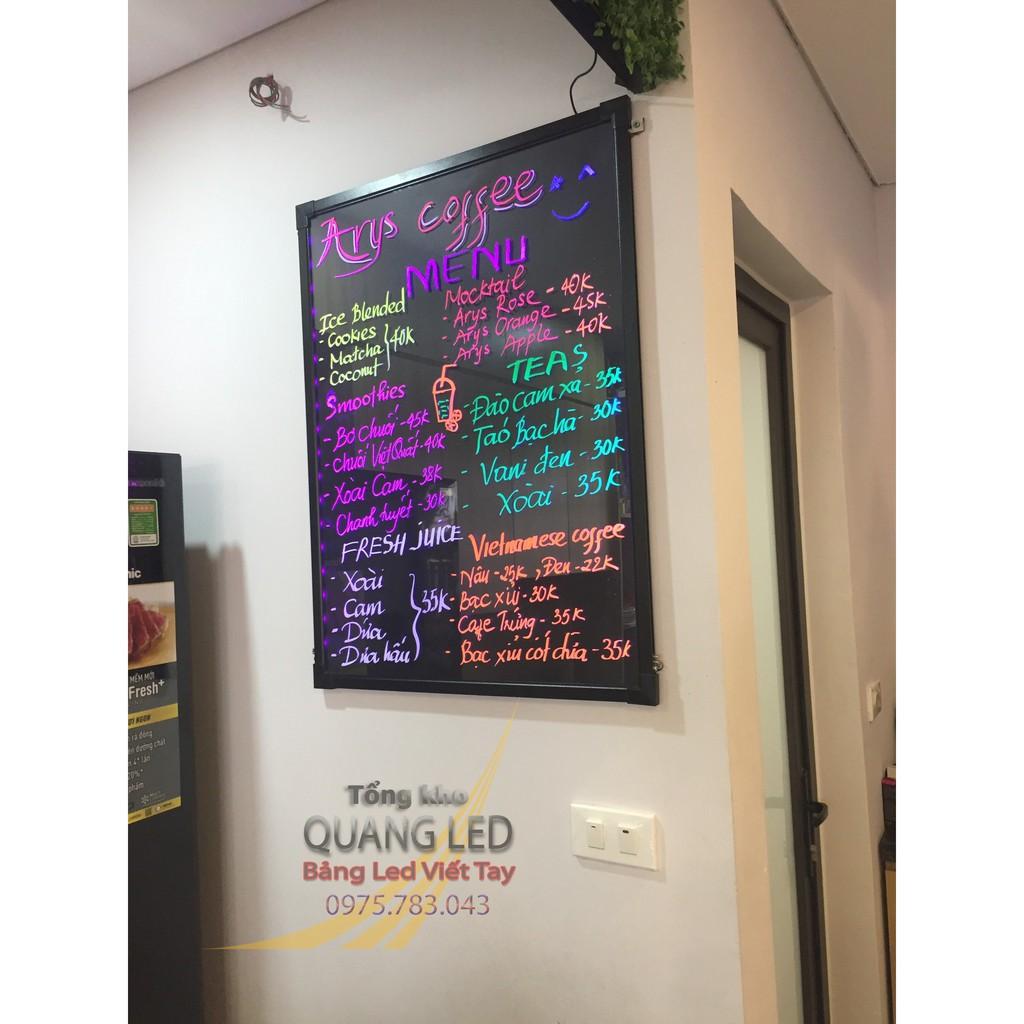 Arys coffee
MENU
Ice Blended
- Cookies
- Matcha } 40k
- Coconut
Mocktail
- Arys Rose - 40k
- Arys Orange - 45k
- Arys Apple - 40k
Smoothies
- Bơ chuối - 45k
- Chuối Việt Quất - 40k
- Xoài Cam - 38k
- Chanh tuyết - 30k
TEAS
- Đào cam xả - 35k
- Táo Bạc hà - 30k
- Vani đen - 30k
- Xoài - 35k
FRESH JUICE
- Xoài
- Cam
- Dứa } 35k
- Dưa hấu
Vietnamese coffee
- Nâu - 25k, Đen - 22k
- Bạc xỉu - 30k
- Cafe Trứng - 35k
- Bạc xỉu cốt dừa - 35k
nic
MỀM MỚI
Fresh+
Tổng kho
QUANG LED
Bảng Led Viết Tay
0975.783.043